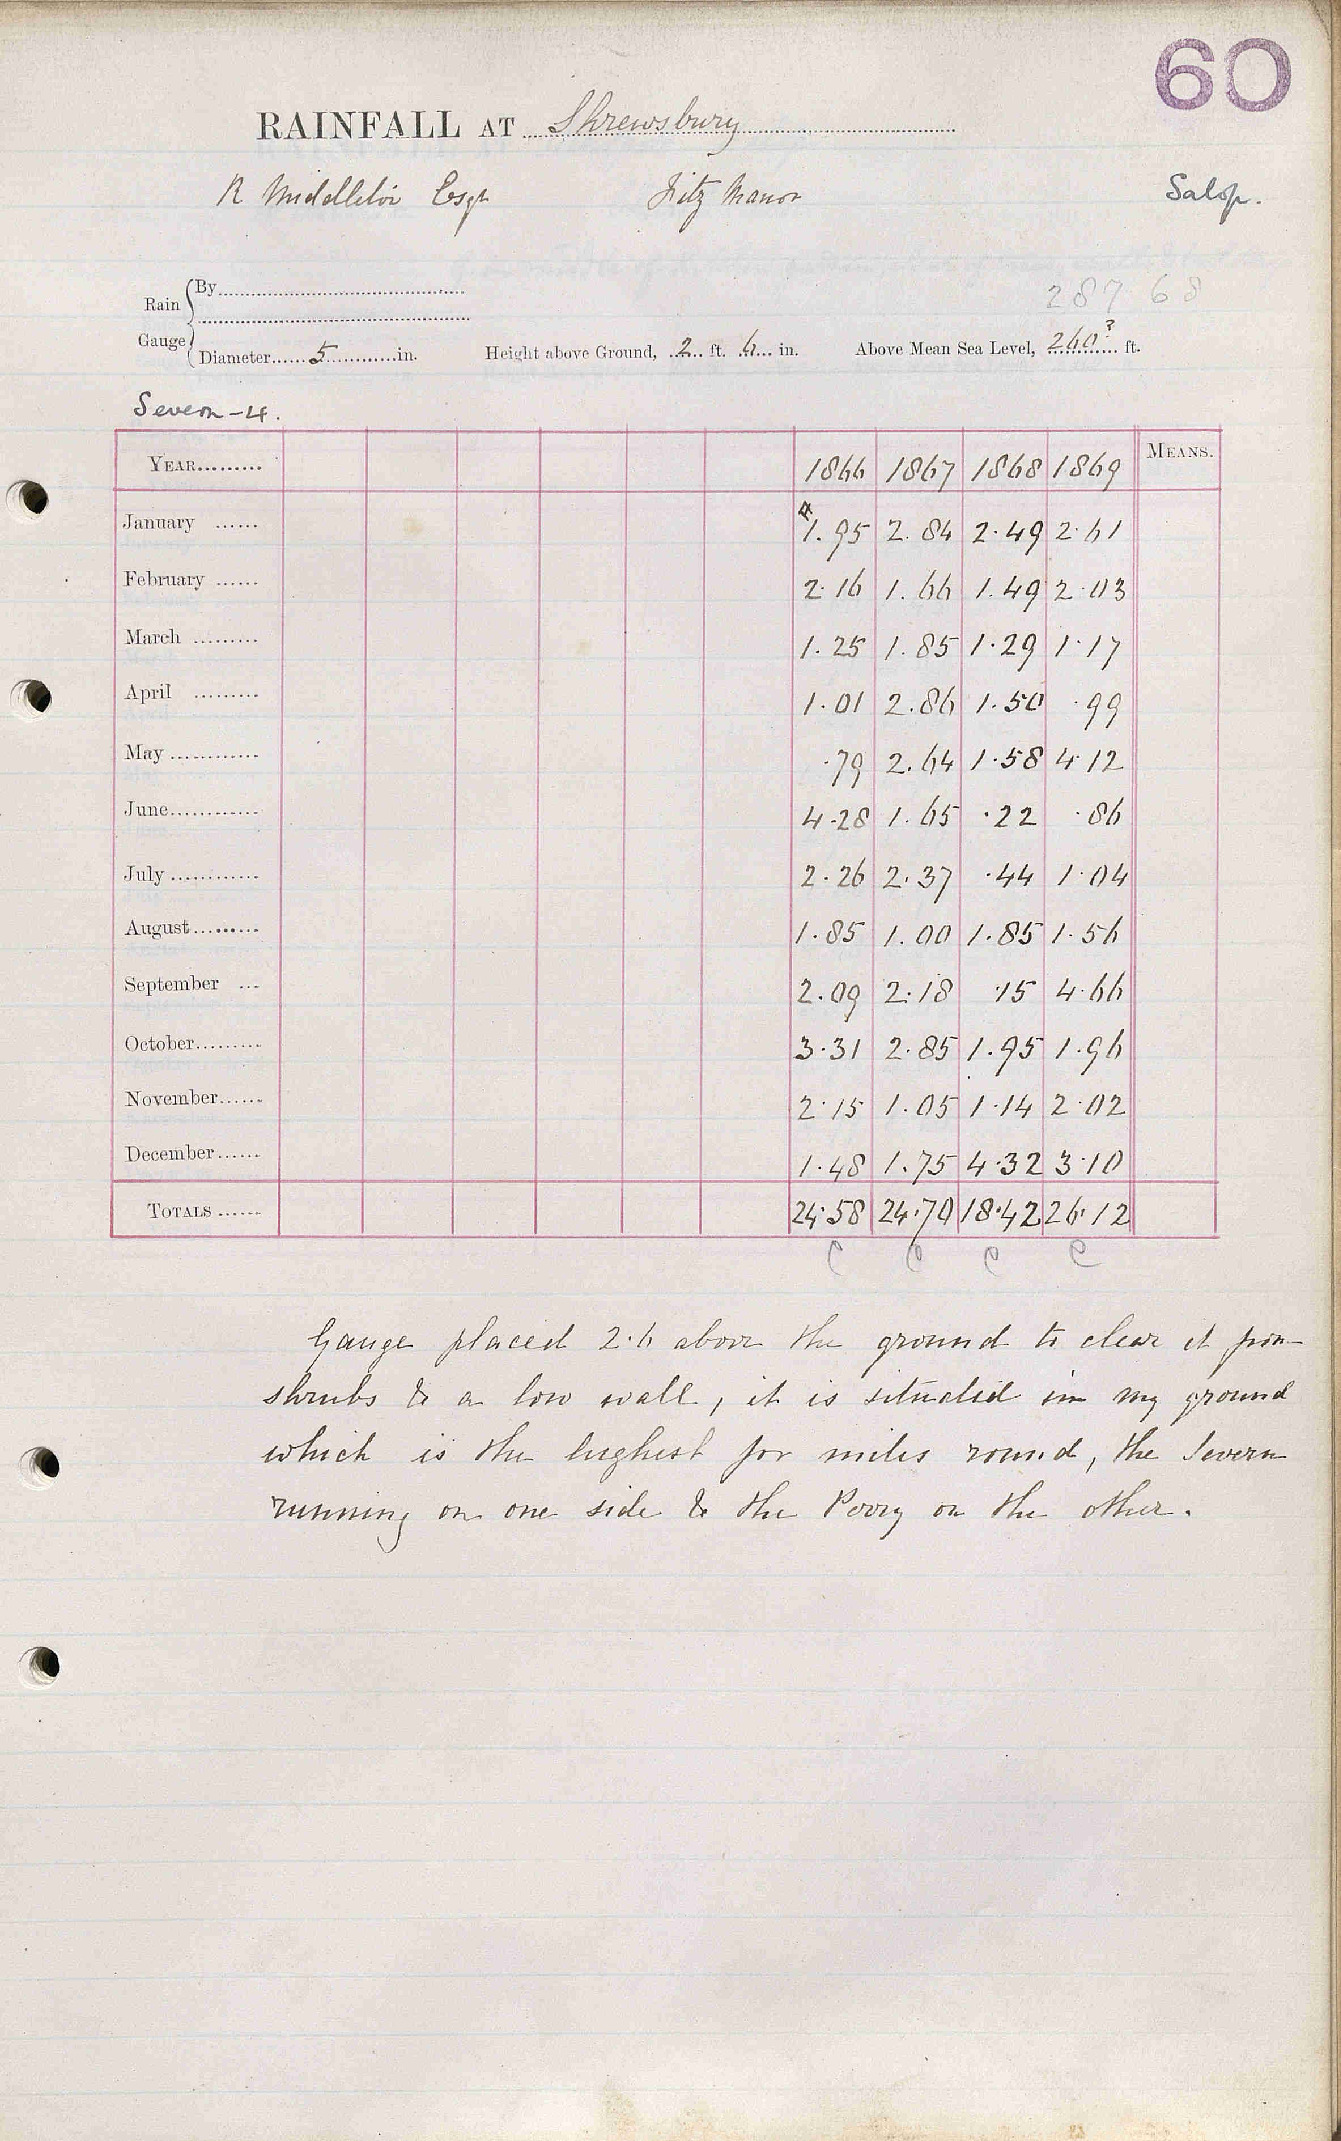 60
RAINFALL AT Shrewsbury
R Middleton Esqr Fitz Manor Salop.
287 68
Rain Gauge By
Diameter 5 in. Height above Ground, 2 ft. 6 in. Above Mean Sea Level, 260? ft.
Severn - 4.
YEAR 1866 1867 1868 1869 MEANS.
January 1.95 2.84 2.49 2.61
February 2.16 1.66 1.49 2.03
March 1.25 1.85 1.29 1.17
April 1.01 2.86 1.50 .99
May .79 2.64 1.58 4.12
June 4.28 1.65 .22 .86
July 2.26 2.37 .44 1.04
August 1.85 1.00 1.85 1.56
September 2.09 2.18 .15 4.66
October 3.31 2.85 1.95 1.96
November 2.15 1.05 1.14 2.02
December 1.48 1.75 4.32 3.10
TOTALS 24.58 24.70 18.42 26.12
C C C C
Gauge placed 2.6 above the ground to clear it from
shrubs & a low wall, it is situated in my ground
which is the highest for miles round, the Severn
running on one side & the Perry on the other.